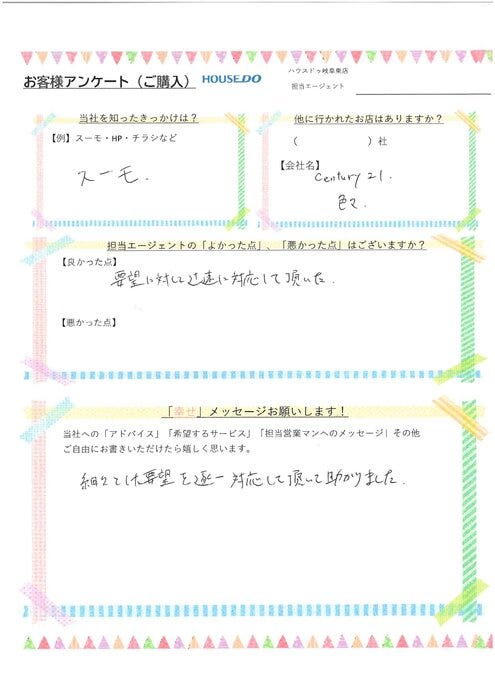 お客様アンケート（ご購入） HOUSE DO
ハウスドゥ岐阜東店
担当エージェント
当社を知ったきっかけは？
【例】スーモ・HP・チラシなど
スーモ.
他に行かれたお店はありますか？
（　　　　　　　）社
【会社名】
Century 21.
色々.
担当エージェントの「よかった点」、「悪かった点」はございますか？
【良かった点】
要望に対して迅速に対応して頂いた.
【悪かった点】
「幸せ」メッセージお願いします！
当社への「アドバイス」「希望するサービス」「担当営業マンへのメッセージ」その他
ご自由にお書きいただけたら嬉しく思います。
細々とした要望を逐一対応して頂いて助かりました.